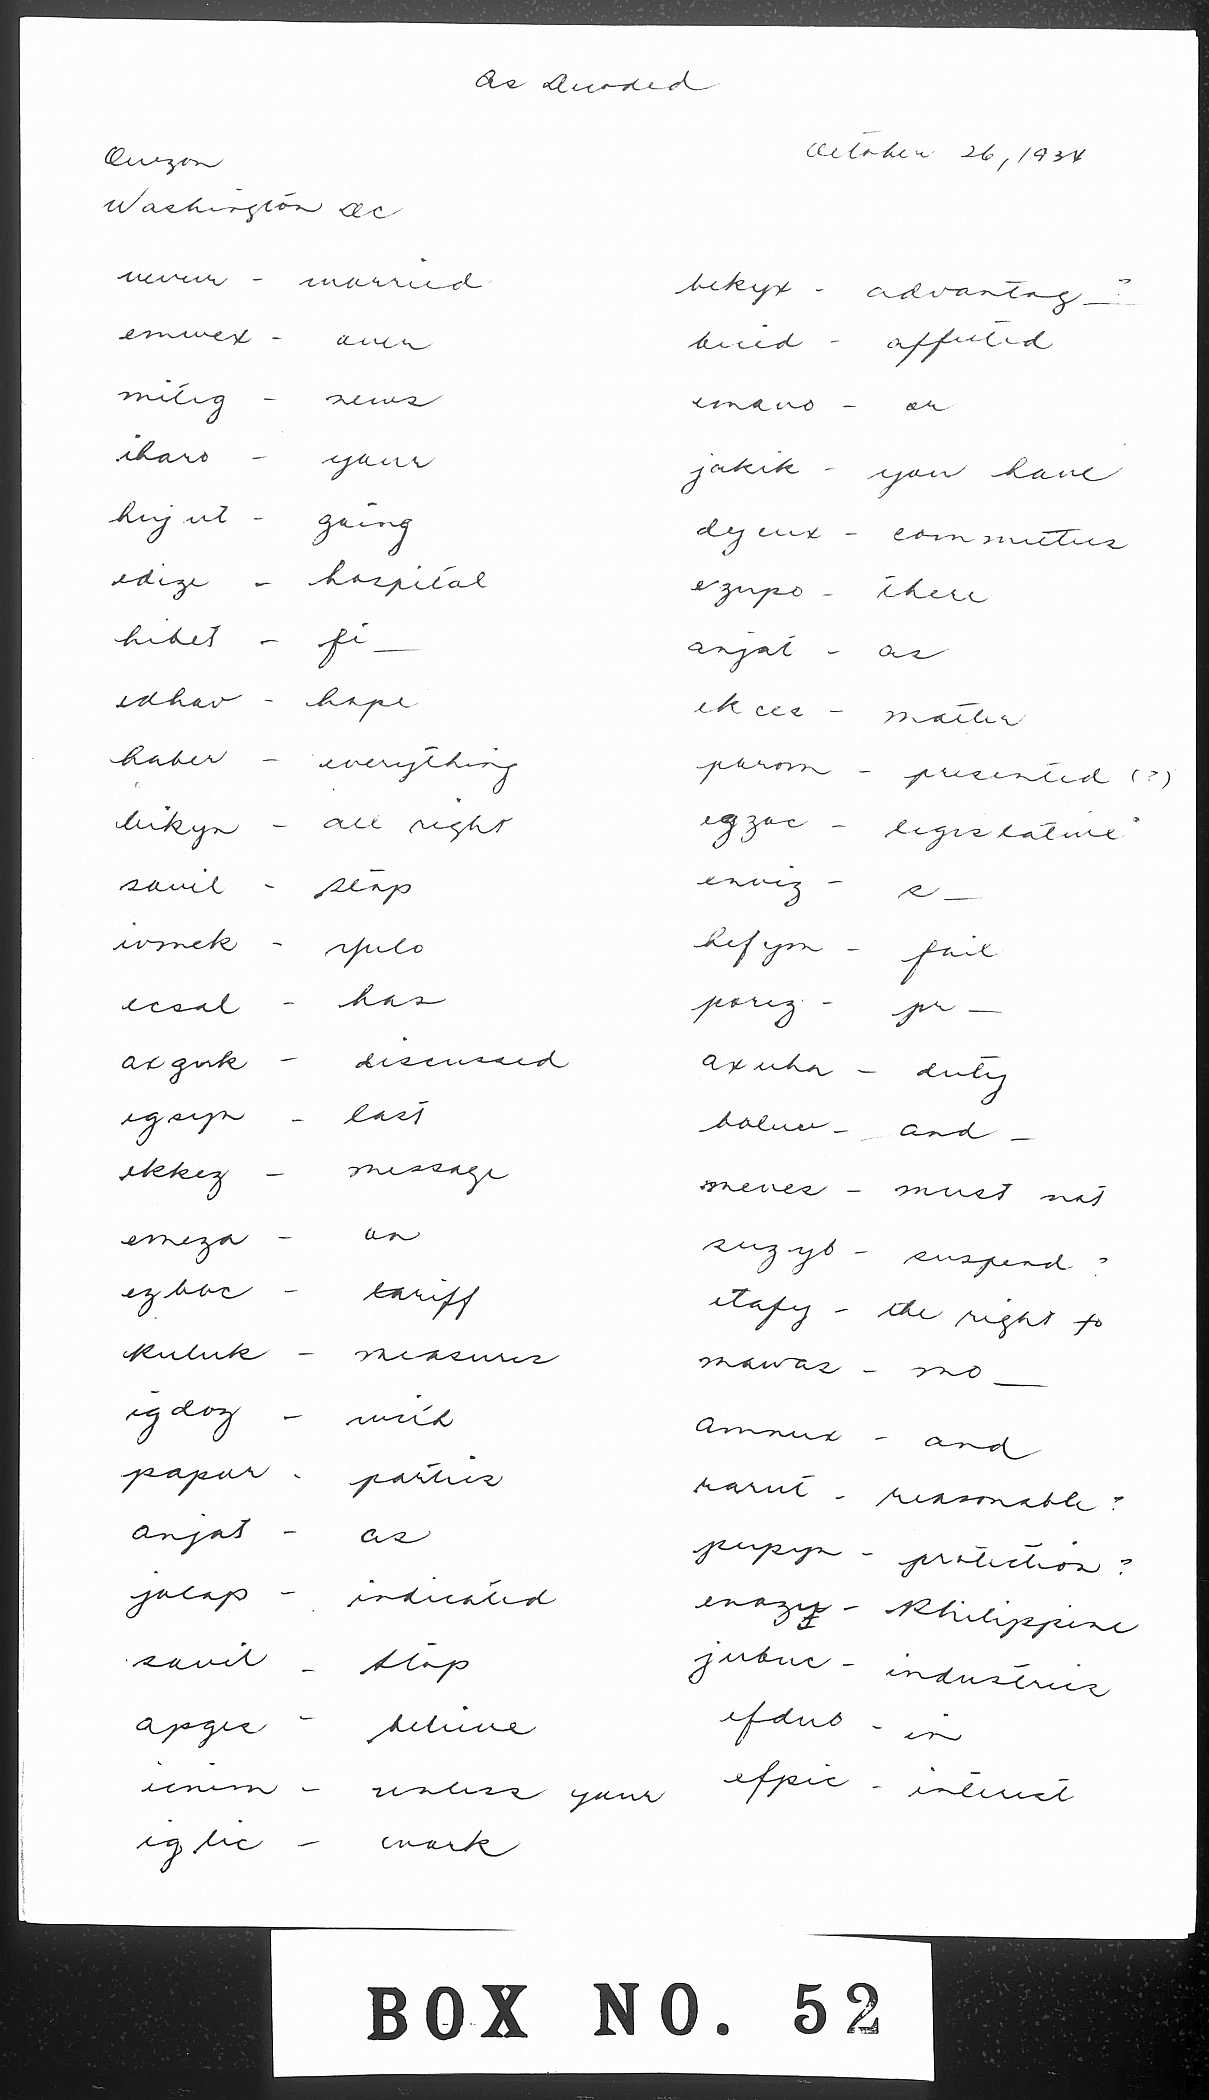 As Decoded
October 26, 1934
Quezon
Washington DC
uevur - married
emwex - over
mitig - news
iharo - your
hujut - going
edize - hospital
hibet - fi_
edhav - hope
haber - everything
bikyn - all right
sauil - stop
ivmek - yulo
ecsal - has
axguk - discussed
egsyn - last
ekkez - message
emeza - on
ezboc - tariff
kuluk - measures
igdoz - with
papur - parties
anjat - as
jalap - indicated
sauil - stop
apges - believe
icnim - unless your
iglic - work
bekyx - advantag_?
bicid - affected
emano - or
jakik - you have
dyeux - committees
ezupo - there
anjat - as
ekces - matter
purom - presented (?)
egzac - legislative?
enviz - s_
hefym - fail
porez - pr_
axuha - duty
baluu - and -
meves - must not
suzyb - suspend ?
etafy - the right to
mawas - mo_
amnux - and
rarut - reasonable ?
pupyn - protection ?
enazy - Philippine
jubuc - industries
efduo - in
efpic - interest
BOX NO. 52